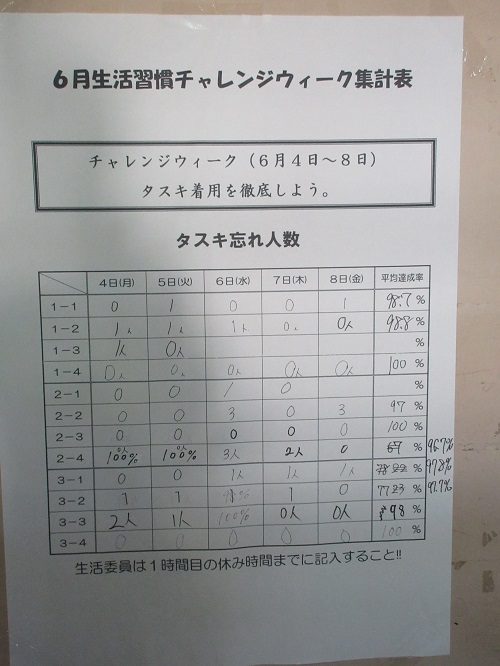 6月生活習慣チャレンジウィーク集計表
チャレンジウィーク（6月4日～8日）
タスキ着用を徹底しよう。
タスキ忘れ人数
4日(月) 5日(火) 6日(水) 7日(木) 8日(金) 平均達成率
1－1 0 1 0 0 1 98.7 %
1－2 1人 1人 1人 0人 0人 98.8 %
1－3 1人 0人 %
1－4 0人 0人 0人 0人 0人 100 %
2－1 0 0 1 0 %
2－2 0 0 3 0 3 97 %
2－3 0 0 0 0 0 100 %
2－4 0人 100% 0人 100% 3人 2人 0 % 96.7%
3－1 0 0 1人 1人 1人 % 97.8%
3－2 1 1 1 0 77.23 % 92.7%
3－3 2人 1人 100% 0人 0人 98 %
3－4 0 0 0 0 0 100 %
生活委員は1時間目の休み時間までに記入すること!!